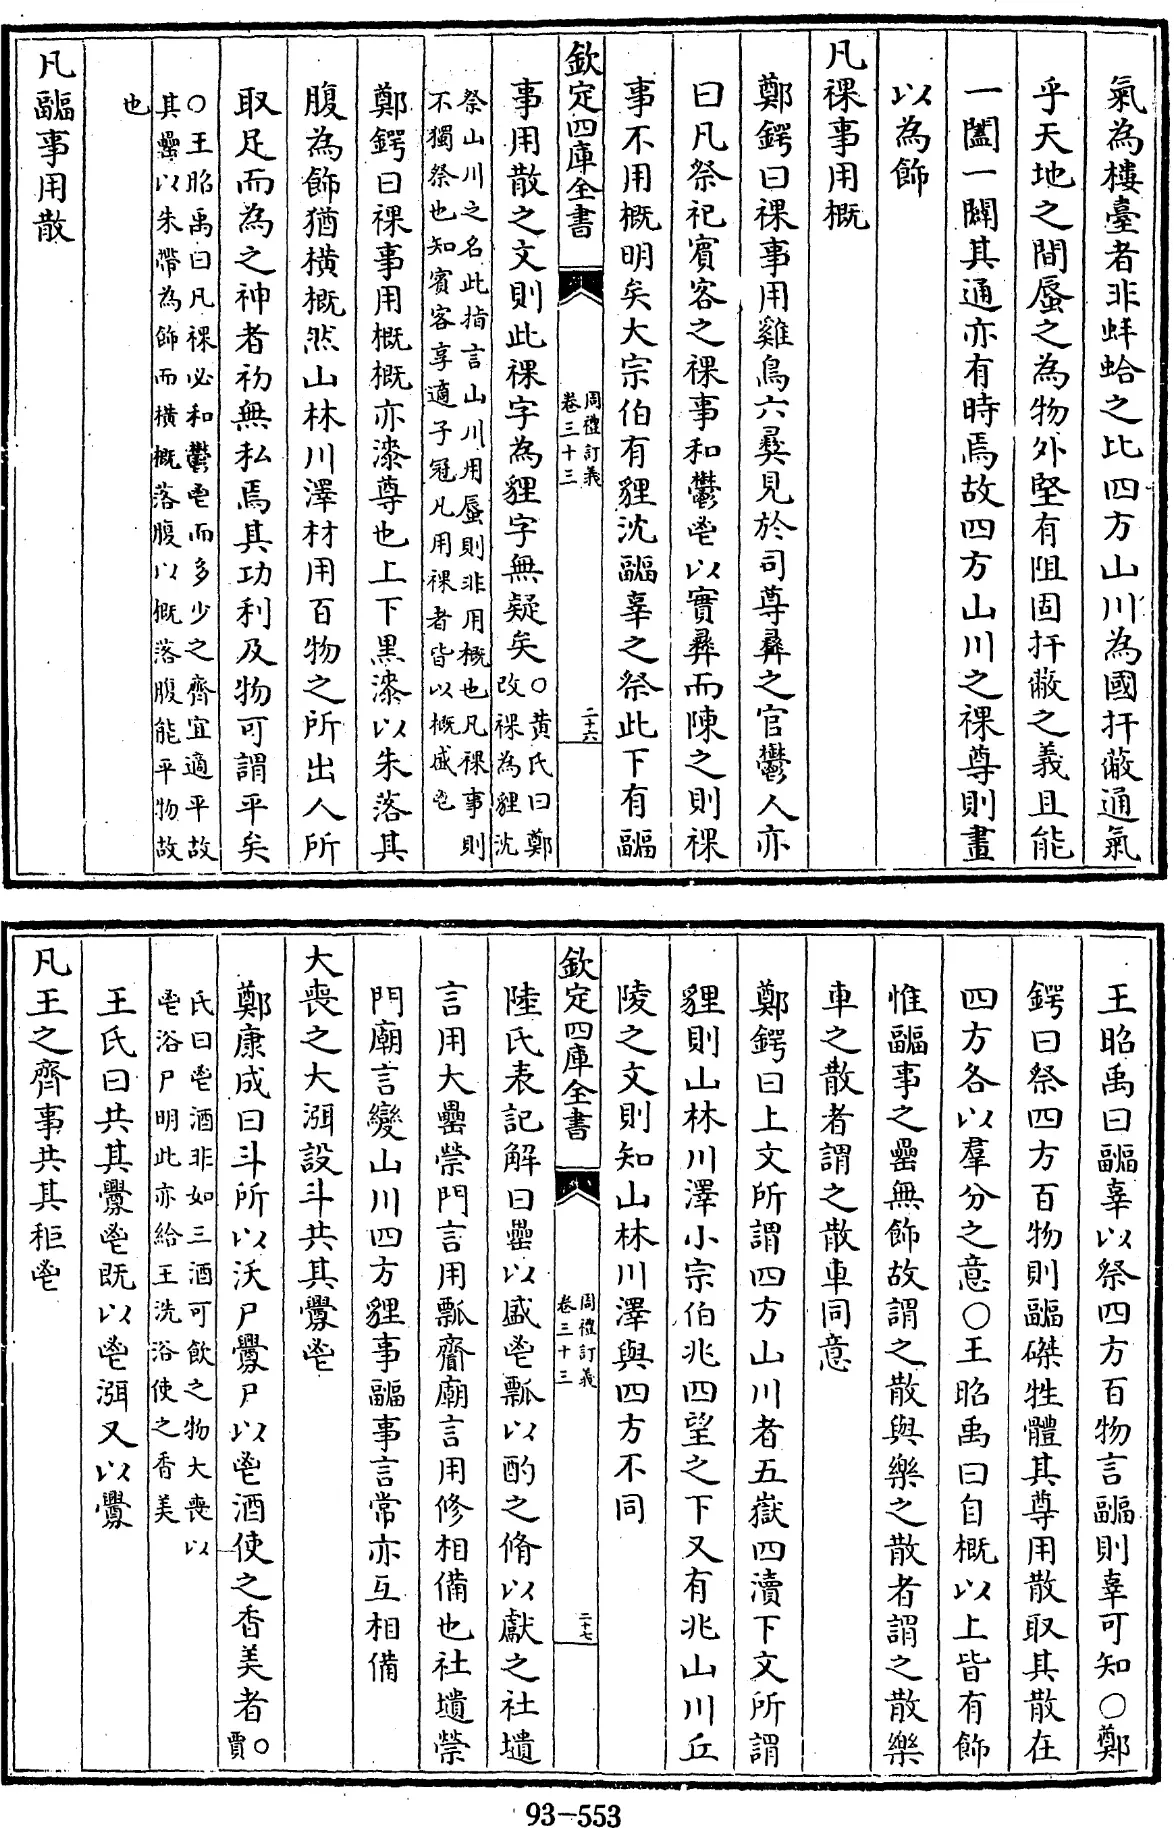 氣為樓臺者非蚌蛤之比四方山川為國扞蔽通氣
乎天地之間蜃之為物外堅有阻固扞蔽之義且能
一闔一闢其通亦有時焉故四方山川之祼尊則畫
以為飾
凡祼事用概
鄭鍔曰祼事用雞鳥六彝見於司尊彝之官鬱人亦
曰凡祭祀賓客之祼事和鬱鬯以實彝而陳之則祼
事不用概明矣大宗伯有貍沈疈辜之祭此下有疈
欽定四庫全書
周禮訂義
卷三十三
二十六
事用散之文則此祼字為貍字無疑矣○黄氏曰鄭
改祼為貍沈
祭山川之名此指言山川用蜃則非用概也凡祼事則
不獨祭也知賓客享適子冠凡用祼者皆以概盛鬯
鄭鍔曰祼事用概概亦漆尊也上下黑漆以朱落其
腹為飾猶橫概然山林川澤材用百物之所出人所
取足而為之神者初無私焉其功利及物可謂平矣
○王昭禹曰凡祼必和鬱鬯而多少之齊宜適平故
其罍以朱帶為飾而橫概落腹以概落腹能平物故
也
凡疈事用散
王昭禹曰疈辜以祭四方百物言疈則辜可知○鄭
鍔曰祭四方百物則疈磔牲體其尊用散取其散在
四方各以羣分之意○王昭禹曰自概以上皆有飾
惟疈事之罍無飾故謂之散與樂之散者謂之散樂
車之散者謂之散車同意
鄭鍔曰上文所謂四方山川者五嶽四瀆下文所謂
貍則山林川澤小宗伯兆四望之下又有兆山川丘
陵之文則知山林川澤與四方不同
欽定四庫全書
周禮訂義
卷三十三
二十七
陸氏表記解曰罍以盛鬯瓢以酌之脩以獻之社壝
言用大罍禜門言用瓢齎廟言用修相備也社壝禜
門廟言變山川四方貍事疈事言常亦互相備
大喪之大渳設斗共其釁鬯
鄭康成曰斗所以沃尸釁尸以鬯酒使之香美者○
賈
氏曰鬯酒非如三酒可飲之物大喪以
鬯浴尸明此亦給王洗浴使之香美
王氏曰共其釁鬯既以鬯渳又以釁
凡王之齊事共其秬鬯
93-553